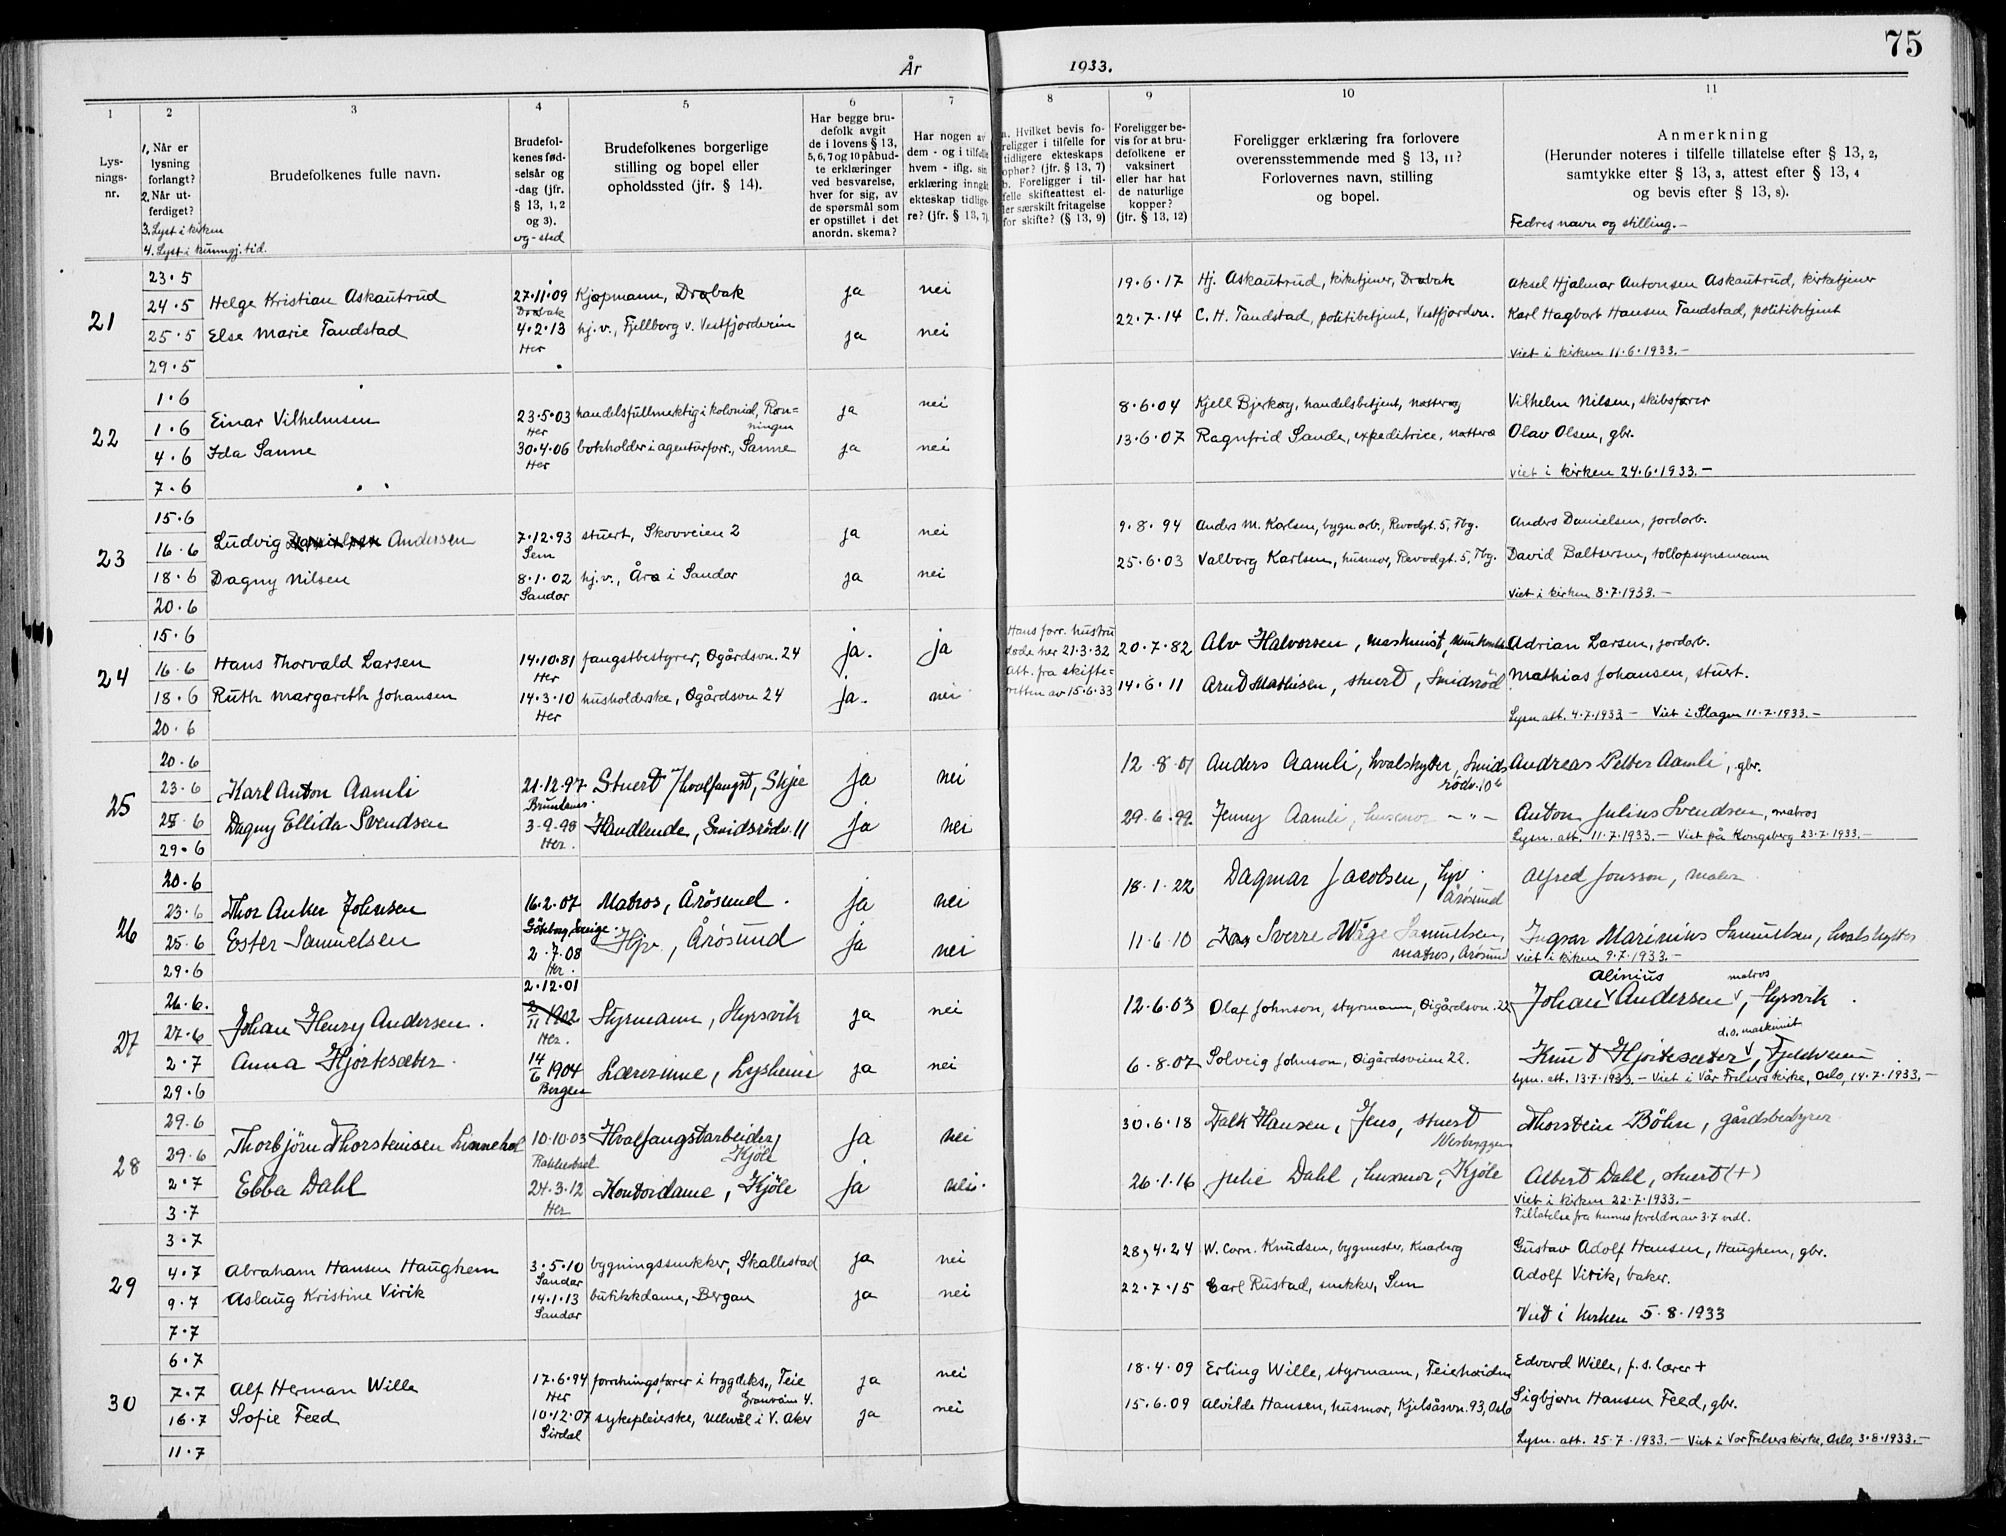 75
År 1933.
1
Lys-
nings-
nr.
2
1. Når er
lysning
forlangt?
2. Når ut-
ferdiget?
3. Lyst i kirken
4. Lyst i kunngj. tid.
3
Brudefolkenes fulle navn.
4
Brudefol-
kenes fød-
selsår og
-dag (jfr.
§ 13, 1, 2
og 3).
og -sted
5
Brudefolkenes borgerlige
stilling og bopel eller
opholdssted (jfr. § 14).
6
Har begge bru-
defolk avgit
de i lovens § 13,
5, 6, 7 og 10 påbud-
te erklæringer
ved besvarelse,
hver for sig, av
de spørsmål som
er opstillet i det
anordn. skema?
7
Har nogen av
dem - og i tilfelle
hvem - iflg. sin
erklæring inngåt
ekteskap tidlige-
re? (jfr. § 13, 7).
8
a. Hvilket bevis fo-
religger i tilfelle for
tidligere ekteskaps
ophør? (jfr. § 13, 7)
b. Foreligger i til-
felle skifteattest el-
ler særskilt fritagelse
for skifte? (§ 13, 9)
9
Foreligger be-
vis for at bru-
defolkene er
vaksinert
eller har hat
de naturlige
kopper?
(jfr. § 13, 12)
10
Foreligger erklæring fra forlovere
overensstemmende med § 13, 11?
Forlovernes navn, stilling
og bopel.
11
Anmerkning
(Herunder noteres i tilfelle tillatelse efter § 13, 2,
samtykke efter § 13, 3, attest efter § 13, 4
og bevis efter § 13, 8).
Fedres navn og stilling.-
21
23.5
24.5
25.5
29.5
Helge Kristian Askautrud 27.11.09 Kjøpmann, Drøbak ja nei 19.6.17 Hj. Askautrud, kirketjener, Drøbak Aksel Hjalmar Antonsen Askautrud, kirketjener
Drøbak
Else Marie Tandstad 4.2.13 hj.v., Fjellborg v. Vestfjordveien ja nei 22.7.14 C. H. Tandstad, politibetjent, Vestfjordvn. Karl Hagbart Hansen Tandstad, politibetjent
Her
Viet i kirken 11.6.1933.-
22
1.6
1.6
4.6
7.6
Einar Vilhelmsen 23.5.03 handelsfullmektig i kolonial, Røn-
ningen ja nei 8.6.04 Kjell Bjerkøy, handelsbetjent, Nøtterøy Vilhelm Nilsen, skibsfører
Her
Ida Sanne 30.4.06 bokholder i agenturforr., Sanne ja nei 13.6.07 Ragnfrid Sande, expeditrice, Nøtterø Olav Olsen, gbr.
Her
Viet i kirken 24.6.1933.-
23
15.6
16.6
18.6
20.6
Ludvig Andersen 7.12.93 stuert, Skovveien 2 ja nei 9.8.94 Anders M. Karlsen, bygn.arb., Revodgt. 5, Tbg. Anders Danielsen, jordarb.
Sem
Dagny Nilsen 8.1.02 hj.v., Årø i Sandar ja nei 25.6.03 Valborg Karlsen, husmor, Revodgt. 5, Tbg. David Baltsersen, tollopsynsmann
Sandar
Viet i kirken 8.7.1933.-
24
15.6
16.6
18.6
20.6
Hans Thorvald Larsen 14.10.81 fangstbestyrer, Øgårdsvn. 24 ja. ja
Her
Hans forr. hustru
døde her 21.3.32
Att. fra skifte-
retten av 15.6.33
20.7.82 Alv Halvorsen, maskinist, Adrian Larsen, jordarb.
Ruth Margareth Johansen 14.3.10 husholderske, Øgårdsvn 24 ja. nei 14.6.11 Arnt Mathisen, stuert, Smidsröd Mathias Johansen, stuert.
Her
Lysn. att. 4.7.1933.- Viet i Slagen 11.7.1933.-
25
20.6
23.6
25.6
29.6
Karl Anton Aamli 21.12.97 Stuert /hvalfangst, Skjee ja nei 12.8.01 Anders Aamli, hvalskytter, Smids
rödv. 10b Andreas Petter Aamli, gbr.
Brunlanes.
Dagny Ellida Svendsen 3.9.98 Handlende, Smidsrödv. 11 ja nei 29.6.99. Jenny Aamli, husmor - " - Anton Julius Svendsen, matros
Her.
Lysn. att. 11.7.1933.- Viet på Kongsberg 23.7.1933.-
26
20.6
23.6
25.6
29.6
Thor Anker Johnsen 16.2.07 Matros, Årösund. ja nei 18.1.22 Dagmar Jacobsen, hjv.
Årösund Alfred Jonsson, maler
Göteborg, Sverige.
Ester Samuelsen 2.7.08 Hjv., Årösund ja nei 11.6.10 Sverre Wåge Samuelsen,
matros, Årösund Ingvar Marinius Samuelsen, hvalskytter
Her.
Viet i kirken 9.7.1933.-
27
26.6.
27.6
2.7
29.6
2.12.01
Johan Henry Andersen. 2/11 1902 Styrmann, Hyrsvik ja nei 12.6.03 Olaf Johnson, styrmann, Øigårdsvn. 22 Johan Alinius Andersen, matros, Hyrsvik.
Her.
Anna Hjortesæter. 14/6 1904 Lærerinne, Lysheim ja nei 6.8.07 Solveig Johnson, Øigårdsveien 22. Knut Hjortesæter, d.s. maskinist, Fjeldveien
Bergen
Lysn. att. 13.7.1933.- Viet i Vår Frelsers kirke, Oslo, 14.7.1933.-
28
29.6
29.6
2.7
3.7
Thorbjörn Thorsteinsen 10.10.03 Hvalfangstarbeider,
Kjöle ja nei 30.6.18 Falk Hansen, Jens, stuert
Nesbryggen Thorstein Böhn, gårdsbestyrer
Ebba Dahl 24.3.12 Kontordame, Kjöle ja nei. 26.1.16 Julie Dahl, husmor, Kjöle Albert Dahl, stuert (+)
Her
Viet i kirken 22.7.1933.-
Tillatelse fra hennes foreldre av 3.7 vedl.
29
3.7
4.7
9.7
7.7
Abraham Hansen Haughem 3.5.10 bygningssnekker, Skallestad ja nei 28.4.24 W. Corn. Knudsen, bygmester, Knarberg Gustav Adolf Hansen, Haughem, gbr.
Sandar
Aslaug Kristine Virik 14.1.13 butikkdame, Bergan ja nei 22.7.15 Carl Rustad, snekker, Sem Adolf Virik, baker.
Sandar
Viet i kirken 5.8.1933
30
6.7
7.7
16.7
11.7
Alf Herman Wille 17.6.94 forretningsfører i trygdeks., Teie
Granveien 4. ja nei 18.4.09 Erling Wille, styrmann, Teiehøiden Edvard Wille, f. s. lærer +
Her
Sofie Feed 10.12.07 sykepleierske, Ullevål i V. Aker ja nei 15.6.09 Alvilde Hansen, husmor, Kjelsåsvn. 93, Oslo Sigbjørn Hansen Feed, gbr.
Sirdal
Lysn. att. 25.7.1933.- Viet i Vor Frelsers kirke, Oslo, 3.8.1933.-